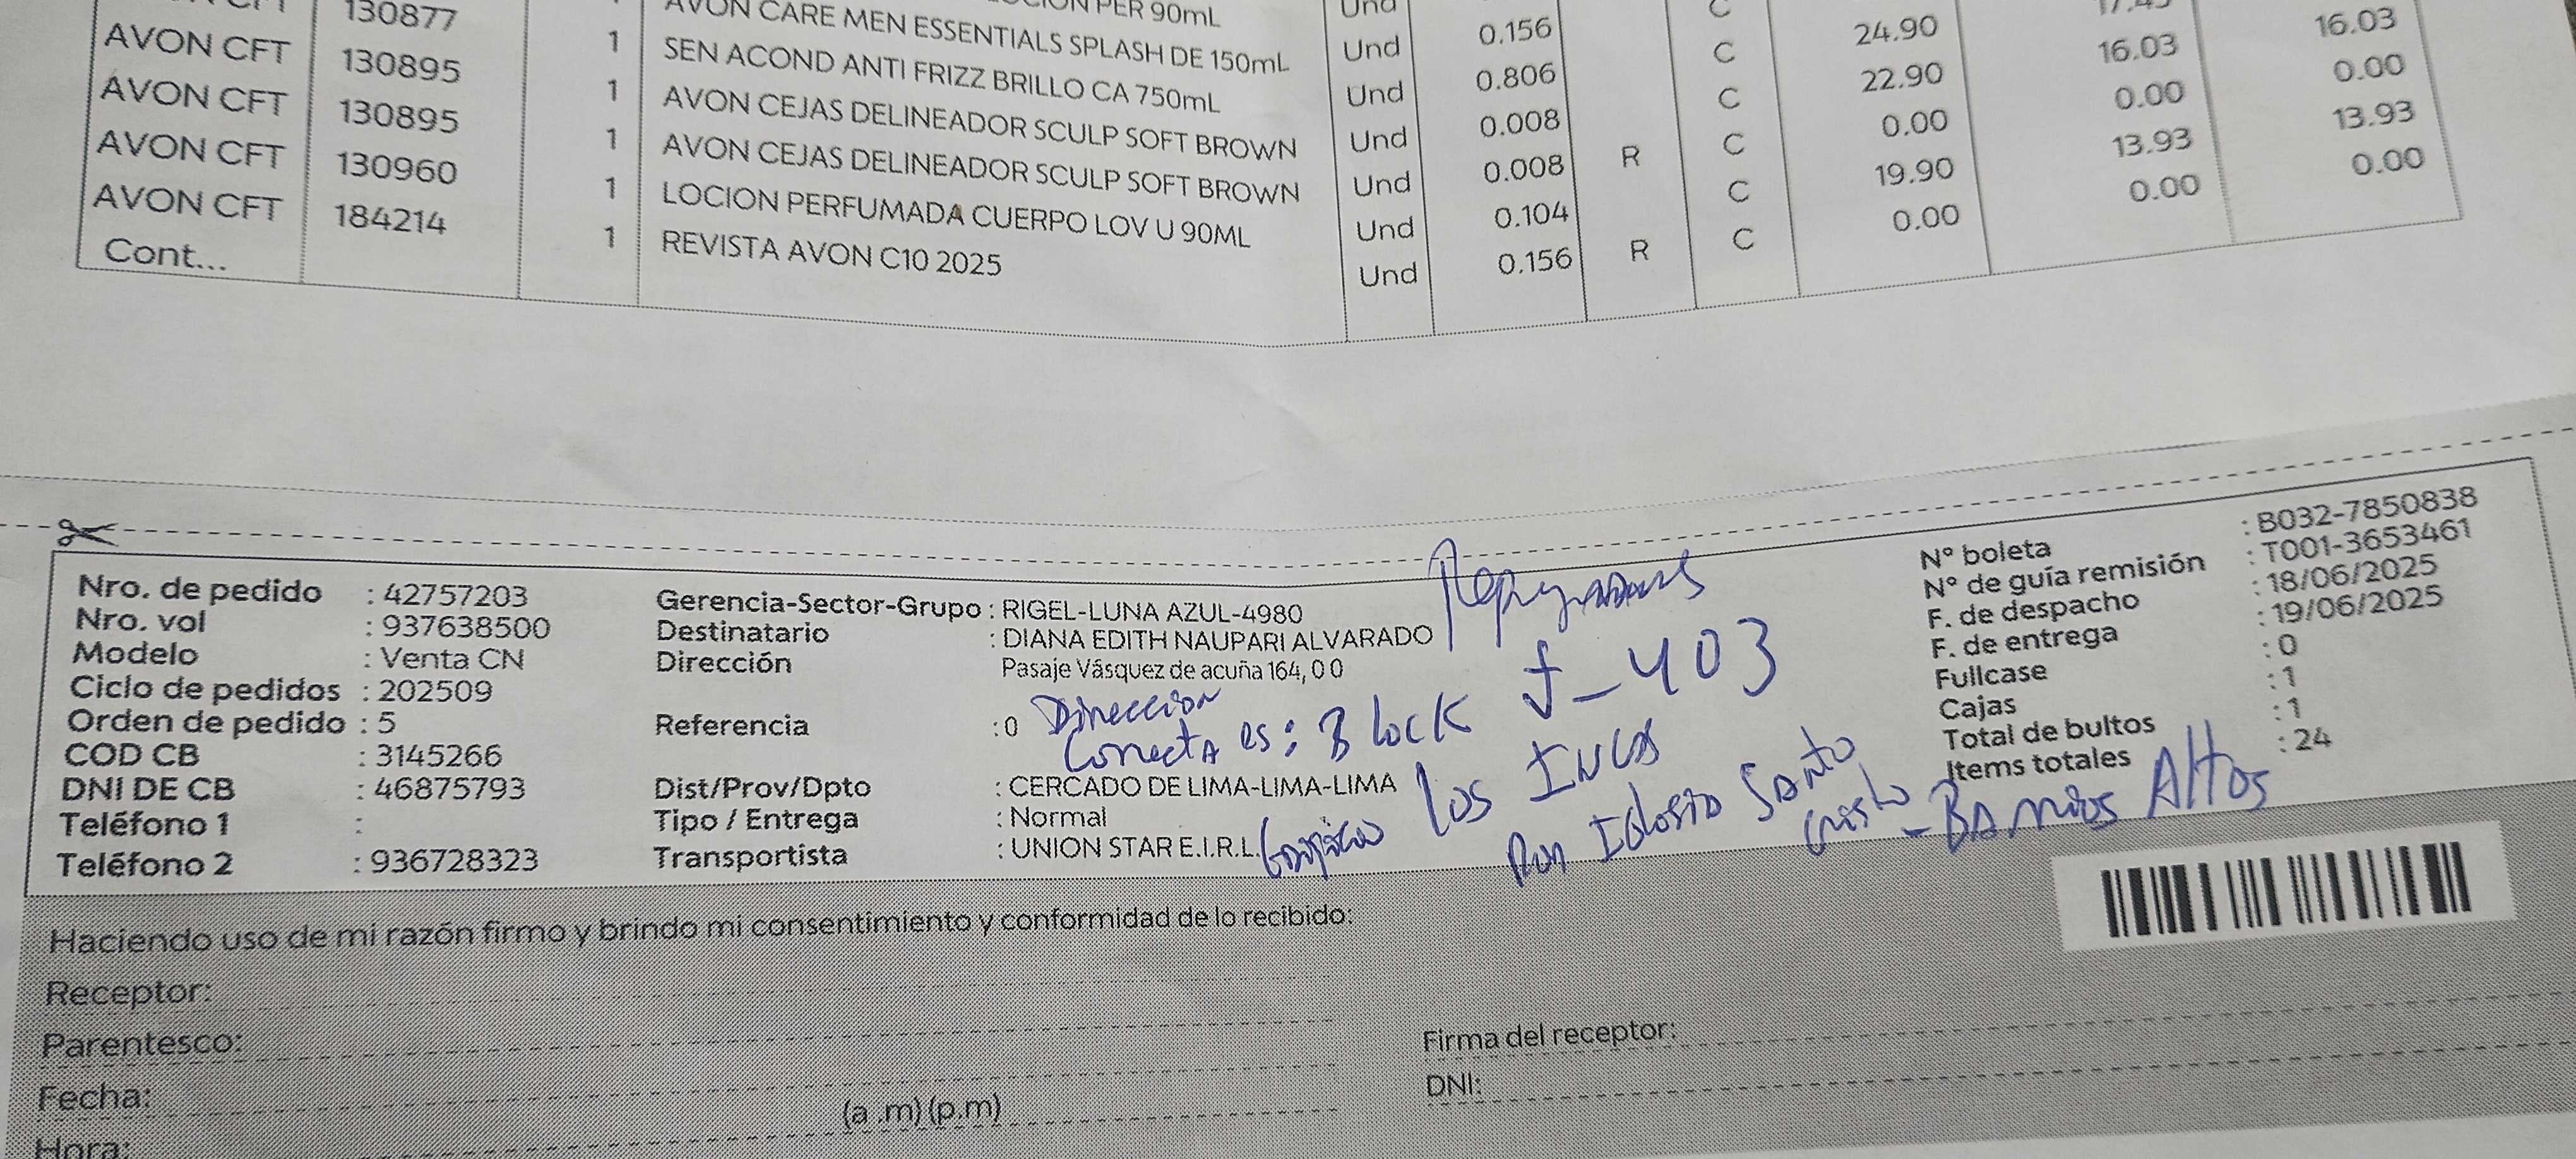 AVON CFT 130877 1 AVON CARE MEN ESSENTIALS SPLASH DE 150mL Und 0.156 C 24.90 16.03 16.03
AVON CFT 130895 1 SEN ACOND ANTI FRIZZ BRILLO CA 750mL Und 0.806 C 22.90 0.00 0.00
AVON CFT 130895 1 AVON CEJAS DELINEADOR SCULP SOFT BROWN Und 0.008 C 0.00 13.93 13.93
AVON CFT 130960 1 AVON CEJAS DELINEADOR SCULP SOFT BROWN Und 0.008 R C 19.90 0.00 0.00
AVON CFT 184214 1 LOCION PERFUMADA CUERPO LOV U 90ML Und 0.104 C 0.00
Cont... 1 REVISTA AVON C10 2025 Und 0.156 R C
Nro. de pedido : 42757203
Nro. vol : 937638500
Modelo : Venta CN
Ciclo de pedidos : 202509
Orden de pedido : 5
COD CB : 3145266
DNI DE CB : 46875793
Teléfono 1 :
Teléfono 2 : 936728323
Gerencia-Sector-Grupo : RIGEL-LUNA AZUL-4980
Destinatario : DIANA EDITH NAUPARI ALVARADO
Dirección Pasaje Vásquez de acuña 164, 0 0
Referencia : 0
Dist/Prov/Dpto : CERCADO DE LIMA-LIMA-LIMA
Tipo / Entrega : Normal
Transportista : UNION STAR E.I.R.L.
Dirección
Correcta es: Block J-403
Los Incas
Por Iglesia Santo
Cristo - Barrios Altos
N° boleta : B032-7850838
N° de guía remisión : T001-3653461
F. de despacho : 18/06/2025
F. de entrega : 19/06/2025
Fullcase : 0
Cajas : 1
Total de bultos : 1
Items totales : 24
Haciendo uso de mi razón firmo y brindo mi consentimiento y conformidad de lo recibido:
Receptor:
Parentesco:
Fecha:
Hora:
(a .m) (p.m)
Firma del receptor:
DNI: